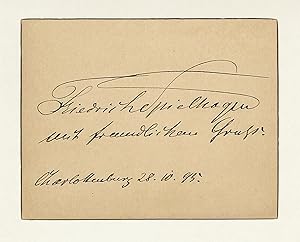 Friedrich Spielhagen
mit freundlichem Gruß.
Charlottenburg 28. 10. 95.